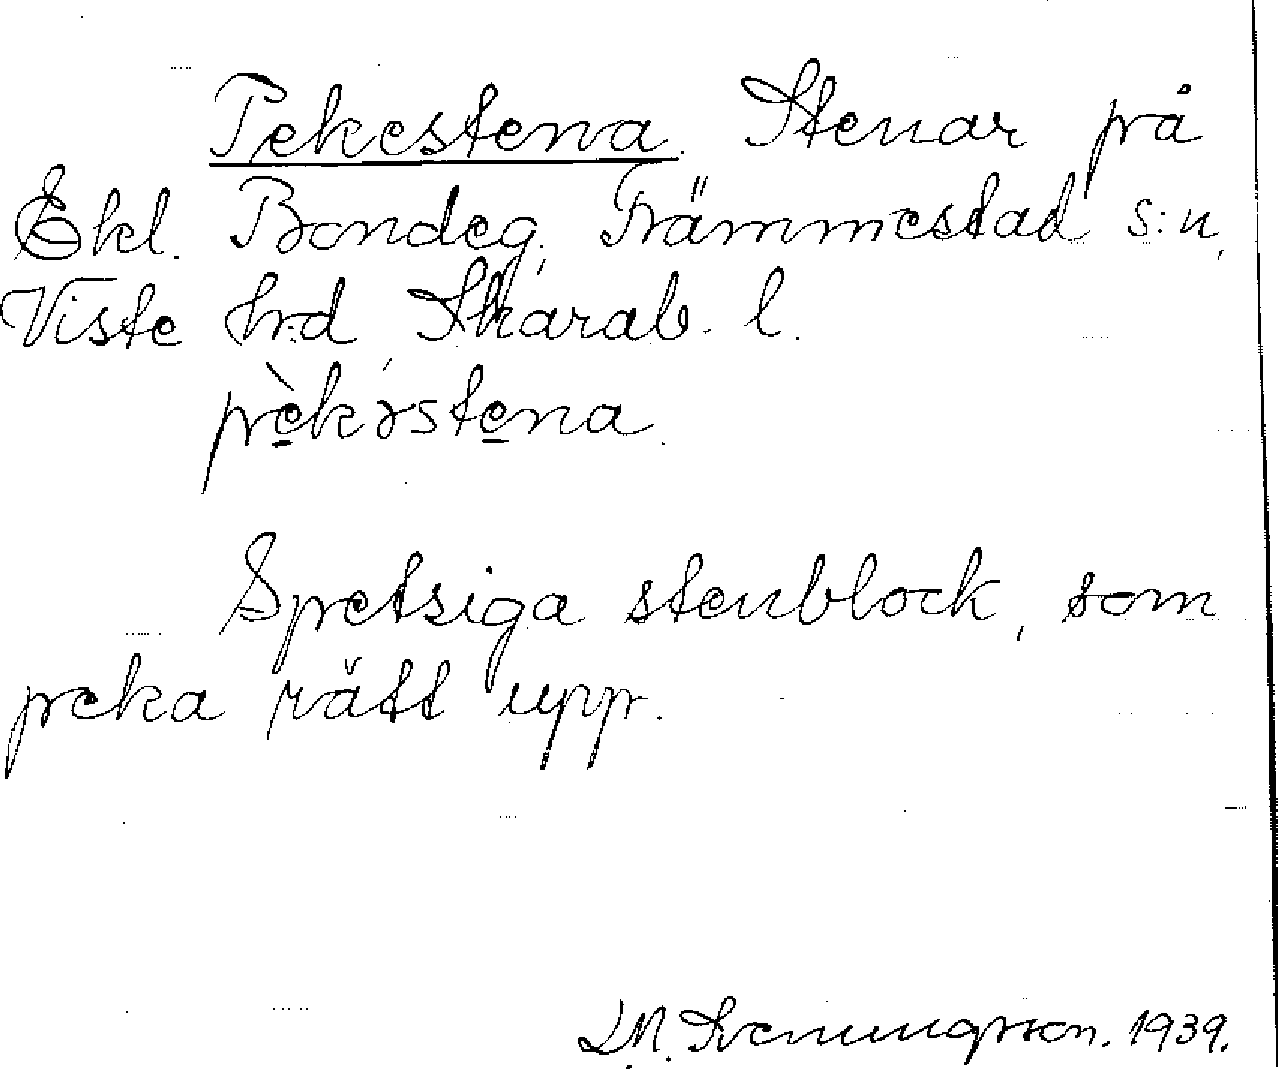 Pekestena. Stenar på
Ekl. Bondeg, Främmestad s:n,
Viste hd, Skarab. l.
pèkəstena.
Spetsiga stenblock, som
peka rätt upp.
D.N. Svenungsson. 1939.